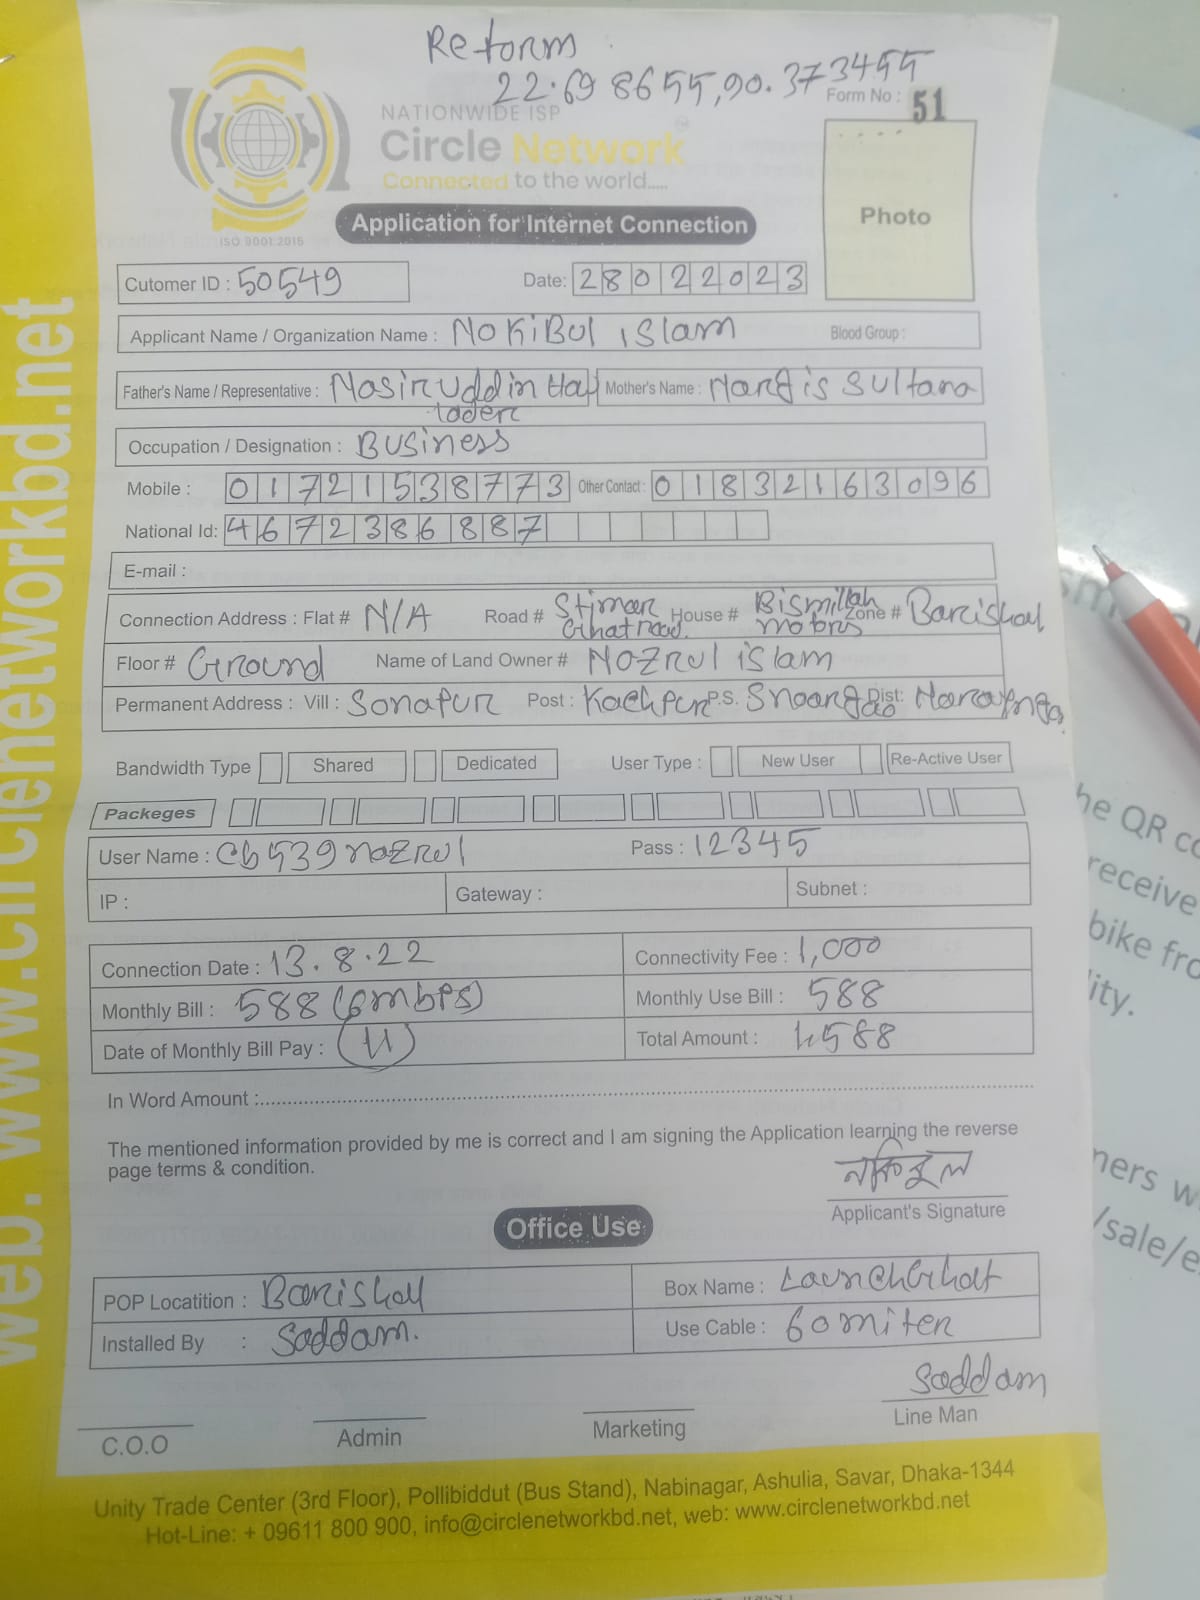 Reform
22.698655,90.373455
Form No : 51
NATIONWIDE ISP
Circle Network
Connected to the world.....
ISO 9001:2015
Application for Internet Connection
Photo
Cutomer ID : 50549 Date: 28022023
Applicant Name / Organization Name : NOKiBUl iSlam Blood Group :
Father's Name / Representative : Nasiruddin Howlader Mother's Name : Nargis Sultana
Occupation / Designation : BUSiness
Mobile : 01721538773 Other Contact : 01832163096
National Id: 4672386887
E-mail :
Connection Address : Flat # N/A Road # Stimar Ghat road. House # Bismillah motors Zone # Barishal
Floor # Ground Name of Land Owner # NOZRUl islam
Permanent Address : Vill : Sonapur Post : Kachpur P.S. Dist:
Bandwidth Type Shared Dedicated User Type : New User Re-Active User
Packeges
User Name : Cb539nozrul Pass : 12345
IP : Gateway : Subnet :
Connection Date : 13.8.22 Connectivity Fee : 1,000
Monthly Bill : 588 (6mbps) Monthly Use Bill : 588
Date of Monthly Bill Pay : Total Amount : 1,588
In Word Amount :
The mentioned information provided by me is correct and I am signing the Application learning the reverse
page terms & condition.
নকিবুল
Applicant's Signature
Office Use
POP Locatition : Barishal Box Name : LaunchGhat
Installed By : Saddam. Use Cable : 60 miter
Saddam
C.O.O Admin Marketing Line Man
Unity Trade Center (3rd Floor), Pollibiddut (Bus Stand), Nabinagar, Ashulia, Savar, Dhaka-1344
Hot-Line: + 09611 800 900, info@circlenetworkbd.net, web: www.circlenetworkbd.net
web. www.circlenetworkbd.net
he QR
receive
bike
ity.
/sale/